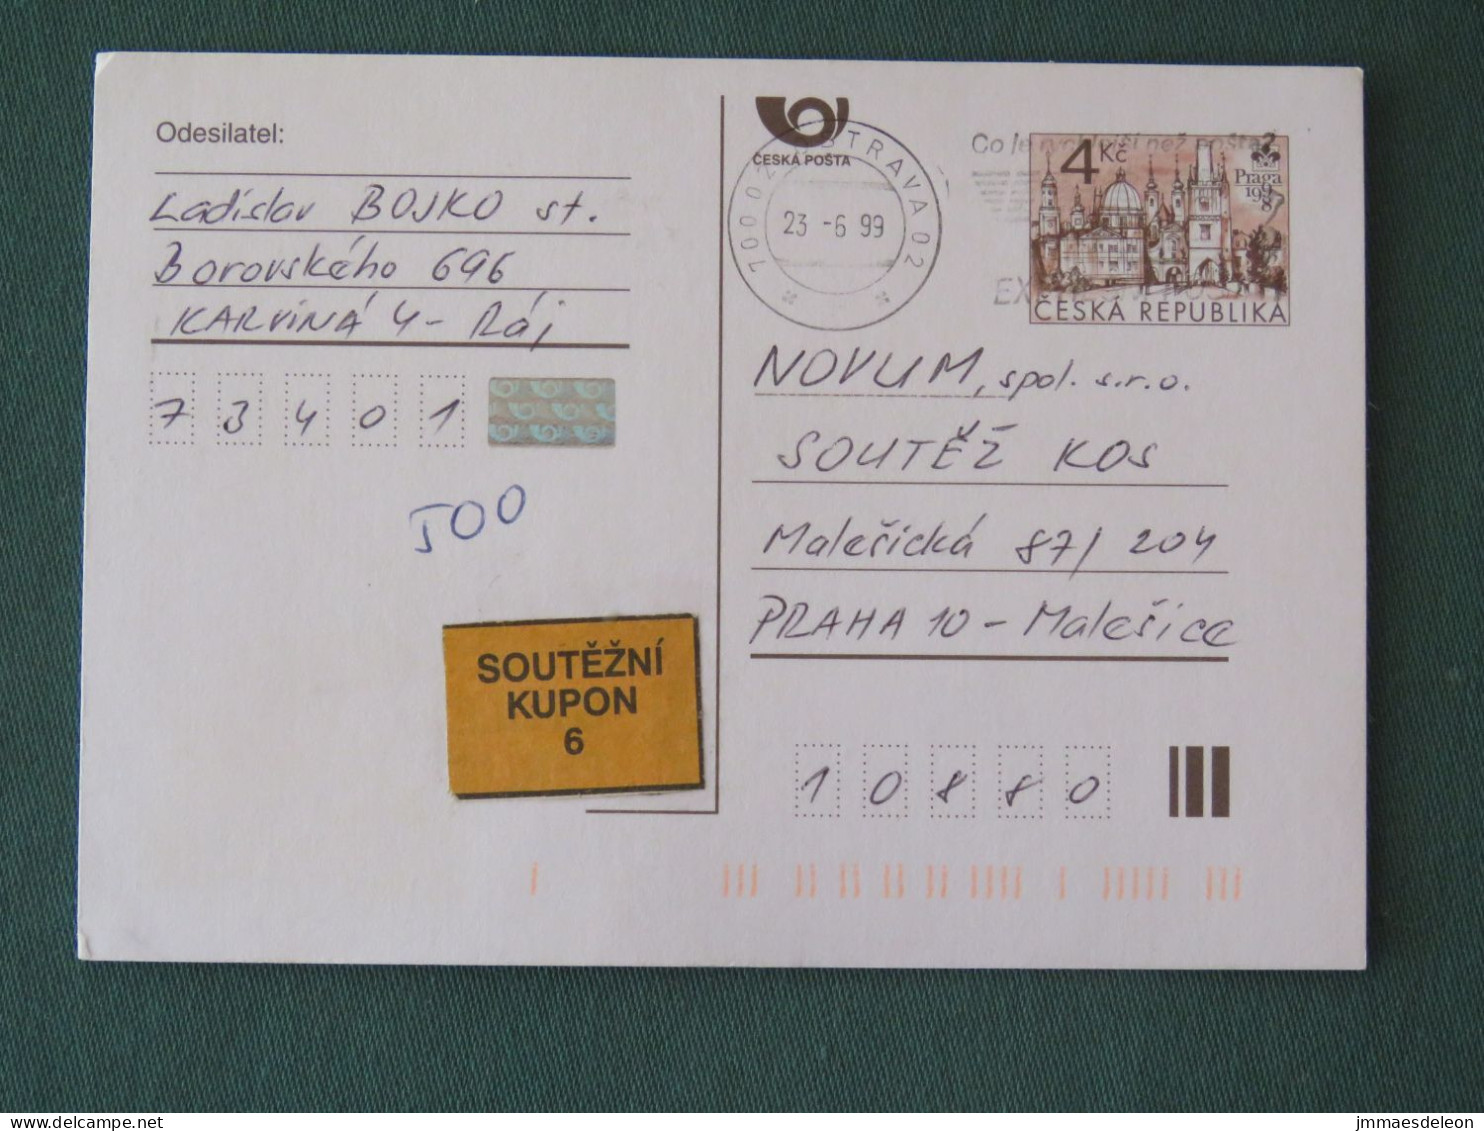 Odesilatel:
Ladislav BOJKO st.
Borovského 696
KARVINÁ 4 - Ráj
73401
500
SOUTĚŽNÍ
KUPON
6
ČESKÁ POŠTA
70002 OSTRAVA 02
23 -6 99
Co je rychlejší než pošta?
4 Kč
Praga
1998
ČESKÁ REPUBLIKA
NOVUM, spol. s.r.o.
SOUTĚŽ KOS
Malešická 87/204
PRAHA 10 - Malešice
10880
jmmaesdeleon